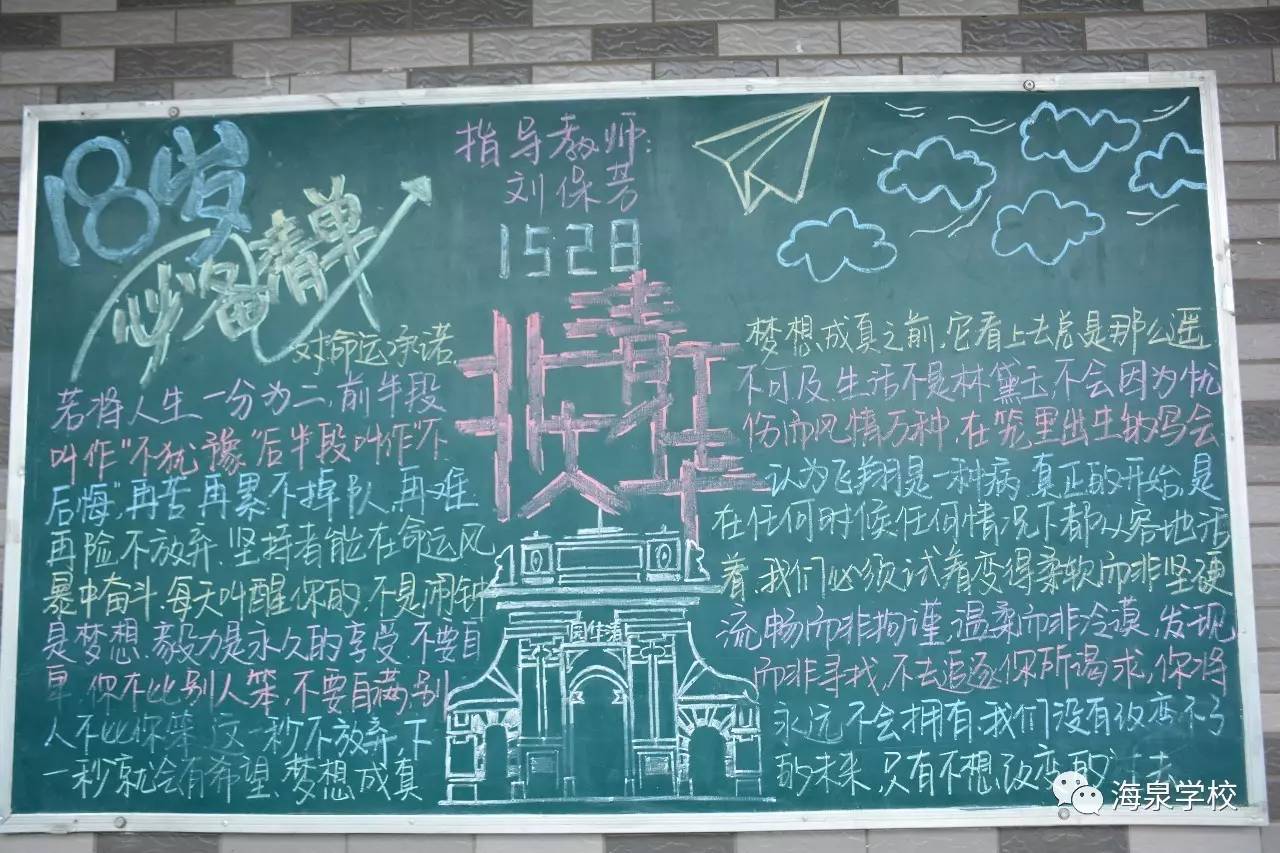 18岁
必备清单
指导教师:
刘保芳
1528
北清
大华
园华清
对命运承诺,
若将人生一分为二,前半段
叫作"不犹豫"后半段叫作"不
后悔",再苦再累不掉队,再难
再险,不放弃.坚持者能在命运风
暴中奋斗.每天叫醒你的.不是闹钟
是梦想.毅力是永久的享受.不要自
卑,你不比别人笨,不要自满,别
人不比你笨.这一秒不放弃,下
一秒就会有希望.梦想成真
梦想成真之前,它看上去总是那么遥
不可及.生活不是林黛玉,不会因为忧
伤而风情万种.在笼里出生的鸟会
认为飞翔是一种病.真正的开始,是
在任何时候任何情况下都从容地活
着.我们必须试着变得柔软而非坚硬
流畅而非拘谨,温柔而非冷漠,发现
而非寻找,不去追逐你所渴求,你将
永远不会拥有.我们没有改变不了
的未来,只有不想改变的过去
海泉学校